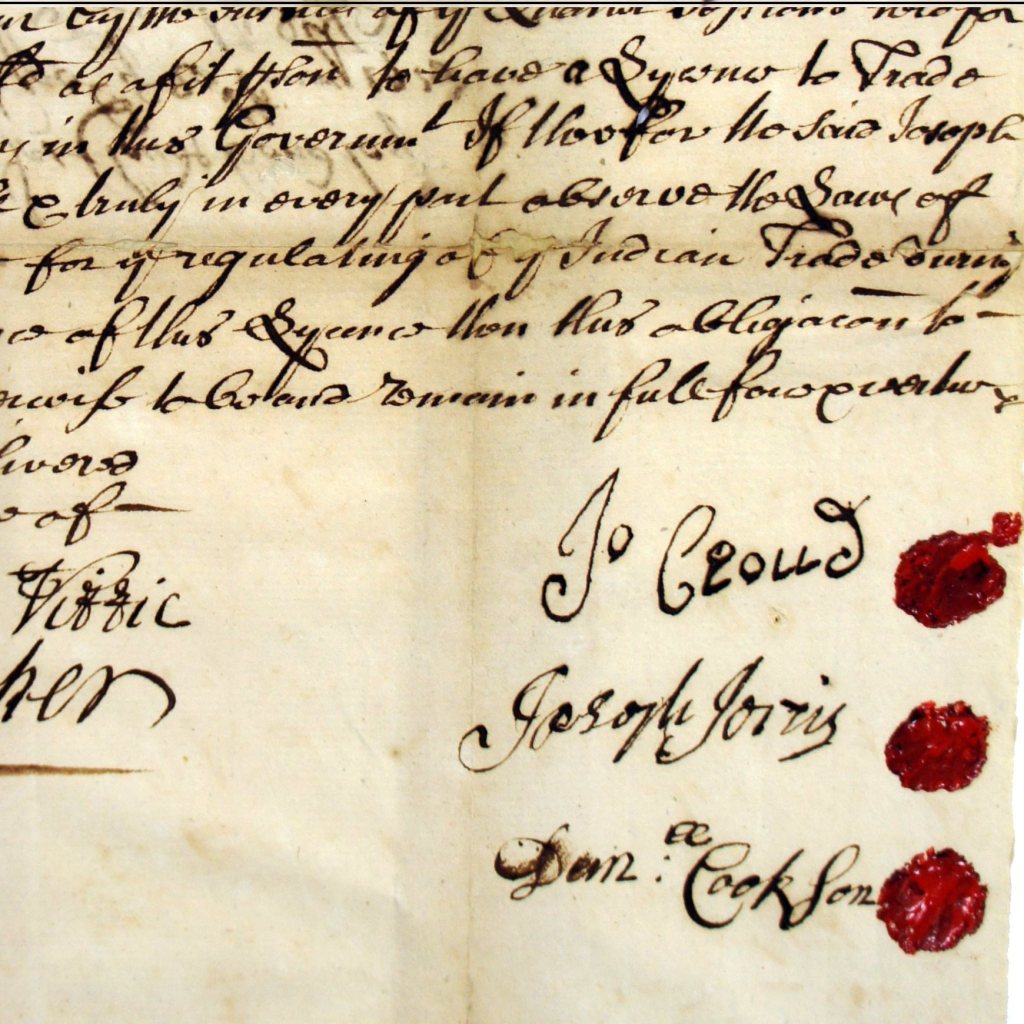 of yᵉ Quarter Sessions
as a fit pson to have a Lycence to Trade
in this Governmᵗ If therefor the said Joseph
& truly in every part observe the Laws of
for yᵉ regulating of yᵉ Indian Trade during
ce of this Lycence then this obligacon to
erwise to be and remain in full force & vertue
livered
e of
ker
Jo Croud
Joseph Jorris
Danˡˡ: Cookson